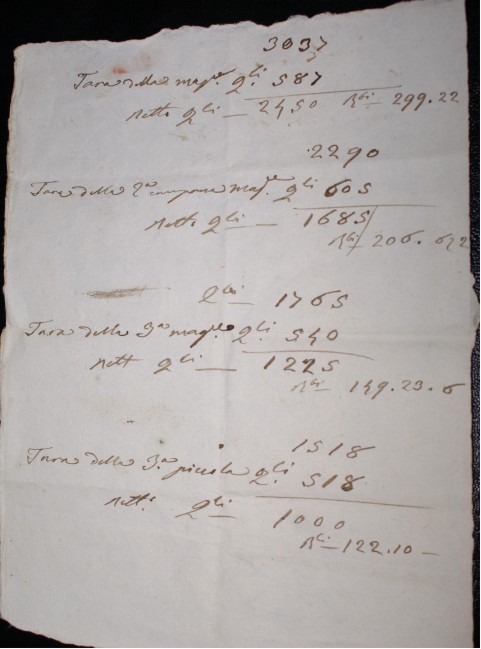 3037
Tara della mag.re q.li 587
Netto q.li — 2450 R.li — 299.22
2290
Tara della 2.a mag.re q.li 605
Netto q.li — 1685
R.li 206.
q.li — 1765
Tara della 3.a mag.re q.li 540
Nett q.li — 1225
R.li — 149.23.6
1518
Tara della 3.a piccola q.li 518
Nett. q.li
1000
R.li — 122.10 —